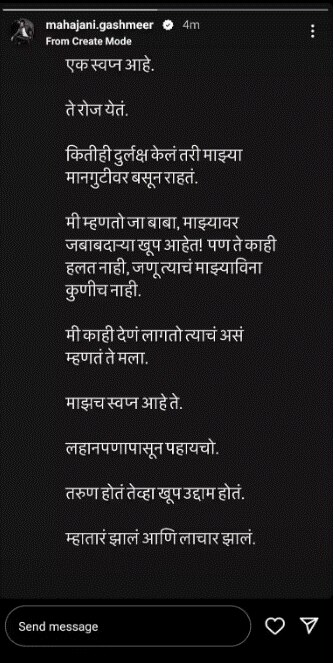 mahajani.gashmeer 4m
From Create Mode
एक स्वप्न आहे.
ते रोज येतं.
कितीही दुर्लक्ष केलं तरी माझ्या
मानगुटीवर बसून राहतं.
मी म्हणतो जा बाबा, माझ्यावर
जबाबदाऱ्या खूप आहेत! पण ते काही
हलत नाही, जणू त्याचं माझ्याविना
कुणीच नाही.
मी काही देणं लागतो त्याचं असं
म्हणतं ते मला.
माझच स्वप्न आहे ते.
लहानपणापासून पहायचो.
तरुण होतं तेव्हा खूप उद्दाम होतं.
म्हातारं झालं आणि लाचार झालं.
Send message